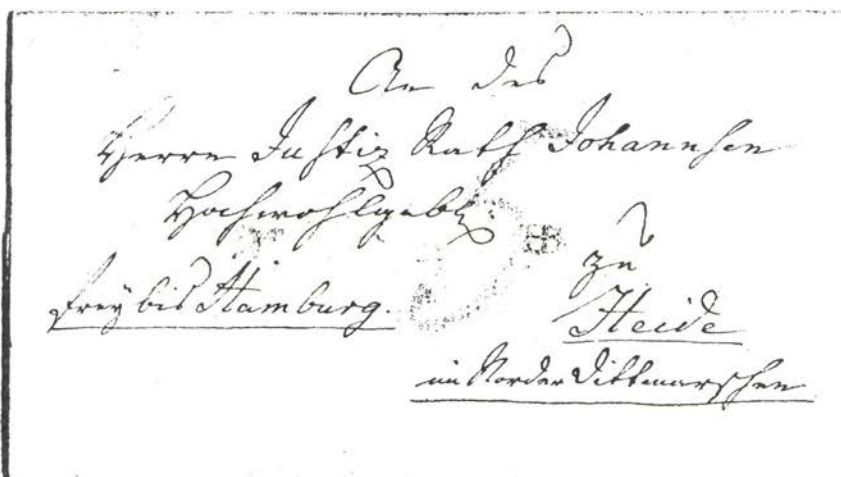 An des
Herrn Justiz Rath Johannsen
Hochwohlgeb.
zu
frey bis Hamburg.
Heide
im Norder Dittmarschen